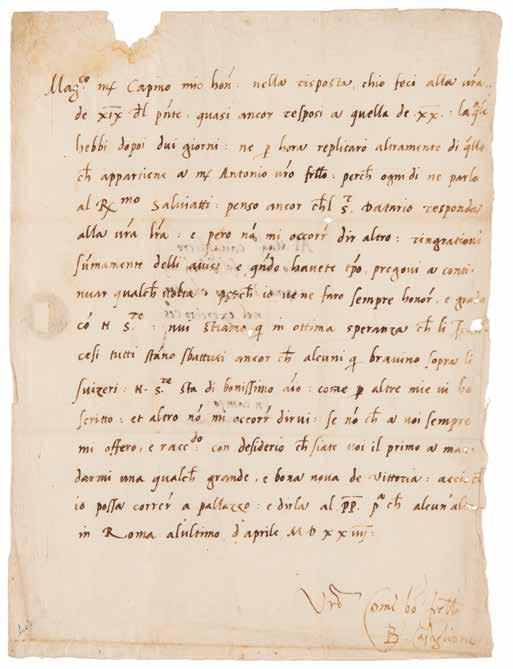 Mag.co m.r Capino mio hon: nella risposta, chio feci alla vra
de XIX dl pnte, quasi ancor resposi a quella de XX. laqle
hebbi dopoi dui giorni: ne p hora replicaro altramente di qllo
ch appartiene a m.r Antonio vro frllo: perch ogni di ne parlo
al R.mo Salviatti: penso ancor chl S. Datario responda
alla vra lra: e pero nō mi occorr dir altro: ringratiovi
sūmamente delli avisi e qndo havete tpo, pregovi a conti-
nuar qualch volta, perch io ve ne faro sempre honor, e grado
cō N S.re: nui stiamo q in ottima speranza ch li
cesi tutti stāno sbattuti ancor ch alcuni q bravino sopra li
suizeri: N. S.re sta di bonissimo aīo: come p altre mie vi ho
scritto: et altro nō mi occorr dirvi: se nō ch a voi sempre
mi offero, e racc.do con desiderio ch siate voi il primo a
darmi una qualch grande, e bona nova de vittoria: acciō ch
io possa correr a pallazzo: e dirla al PP. p.a ch alcun
in Roma alultimo d'aprile M D XXIIII:
Vro Come bō frllo
B. Castiglione